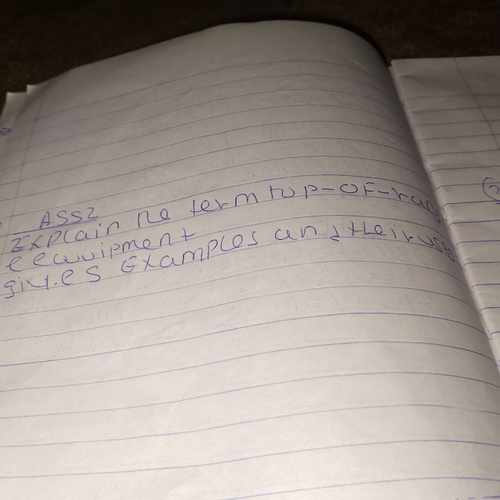 ASS2
Explain the term top-of-range
eequipment
gives Examples and their uses